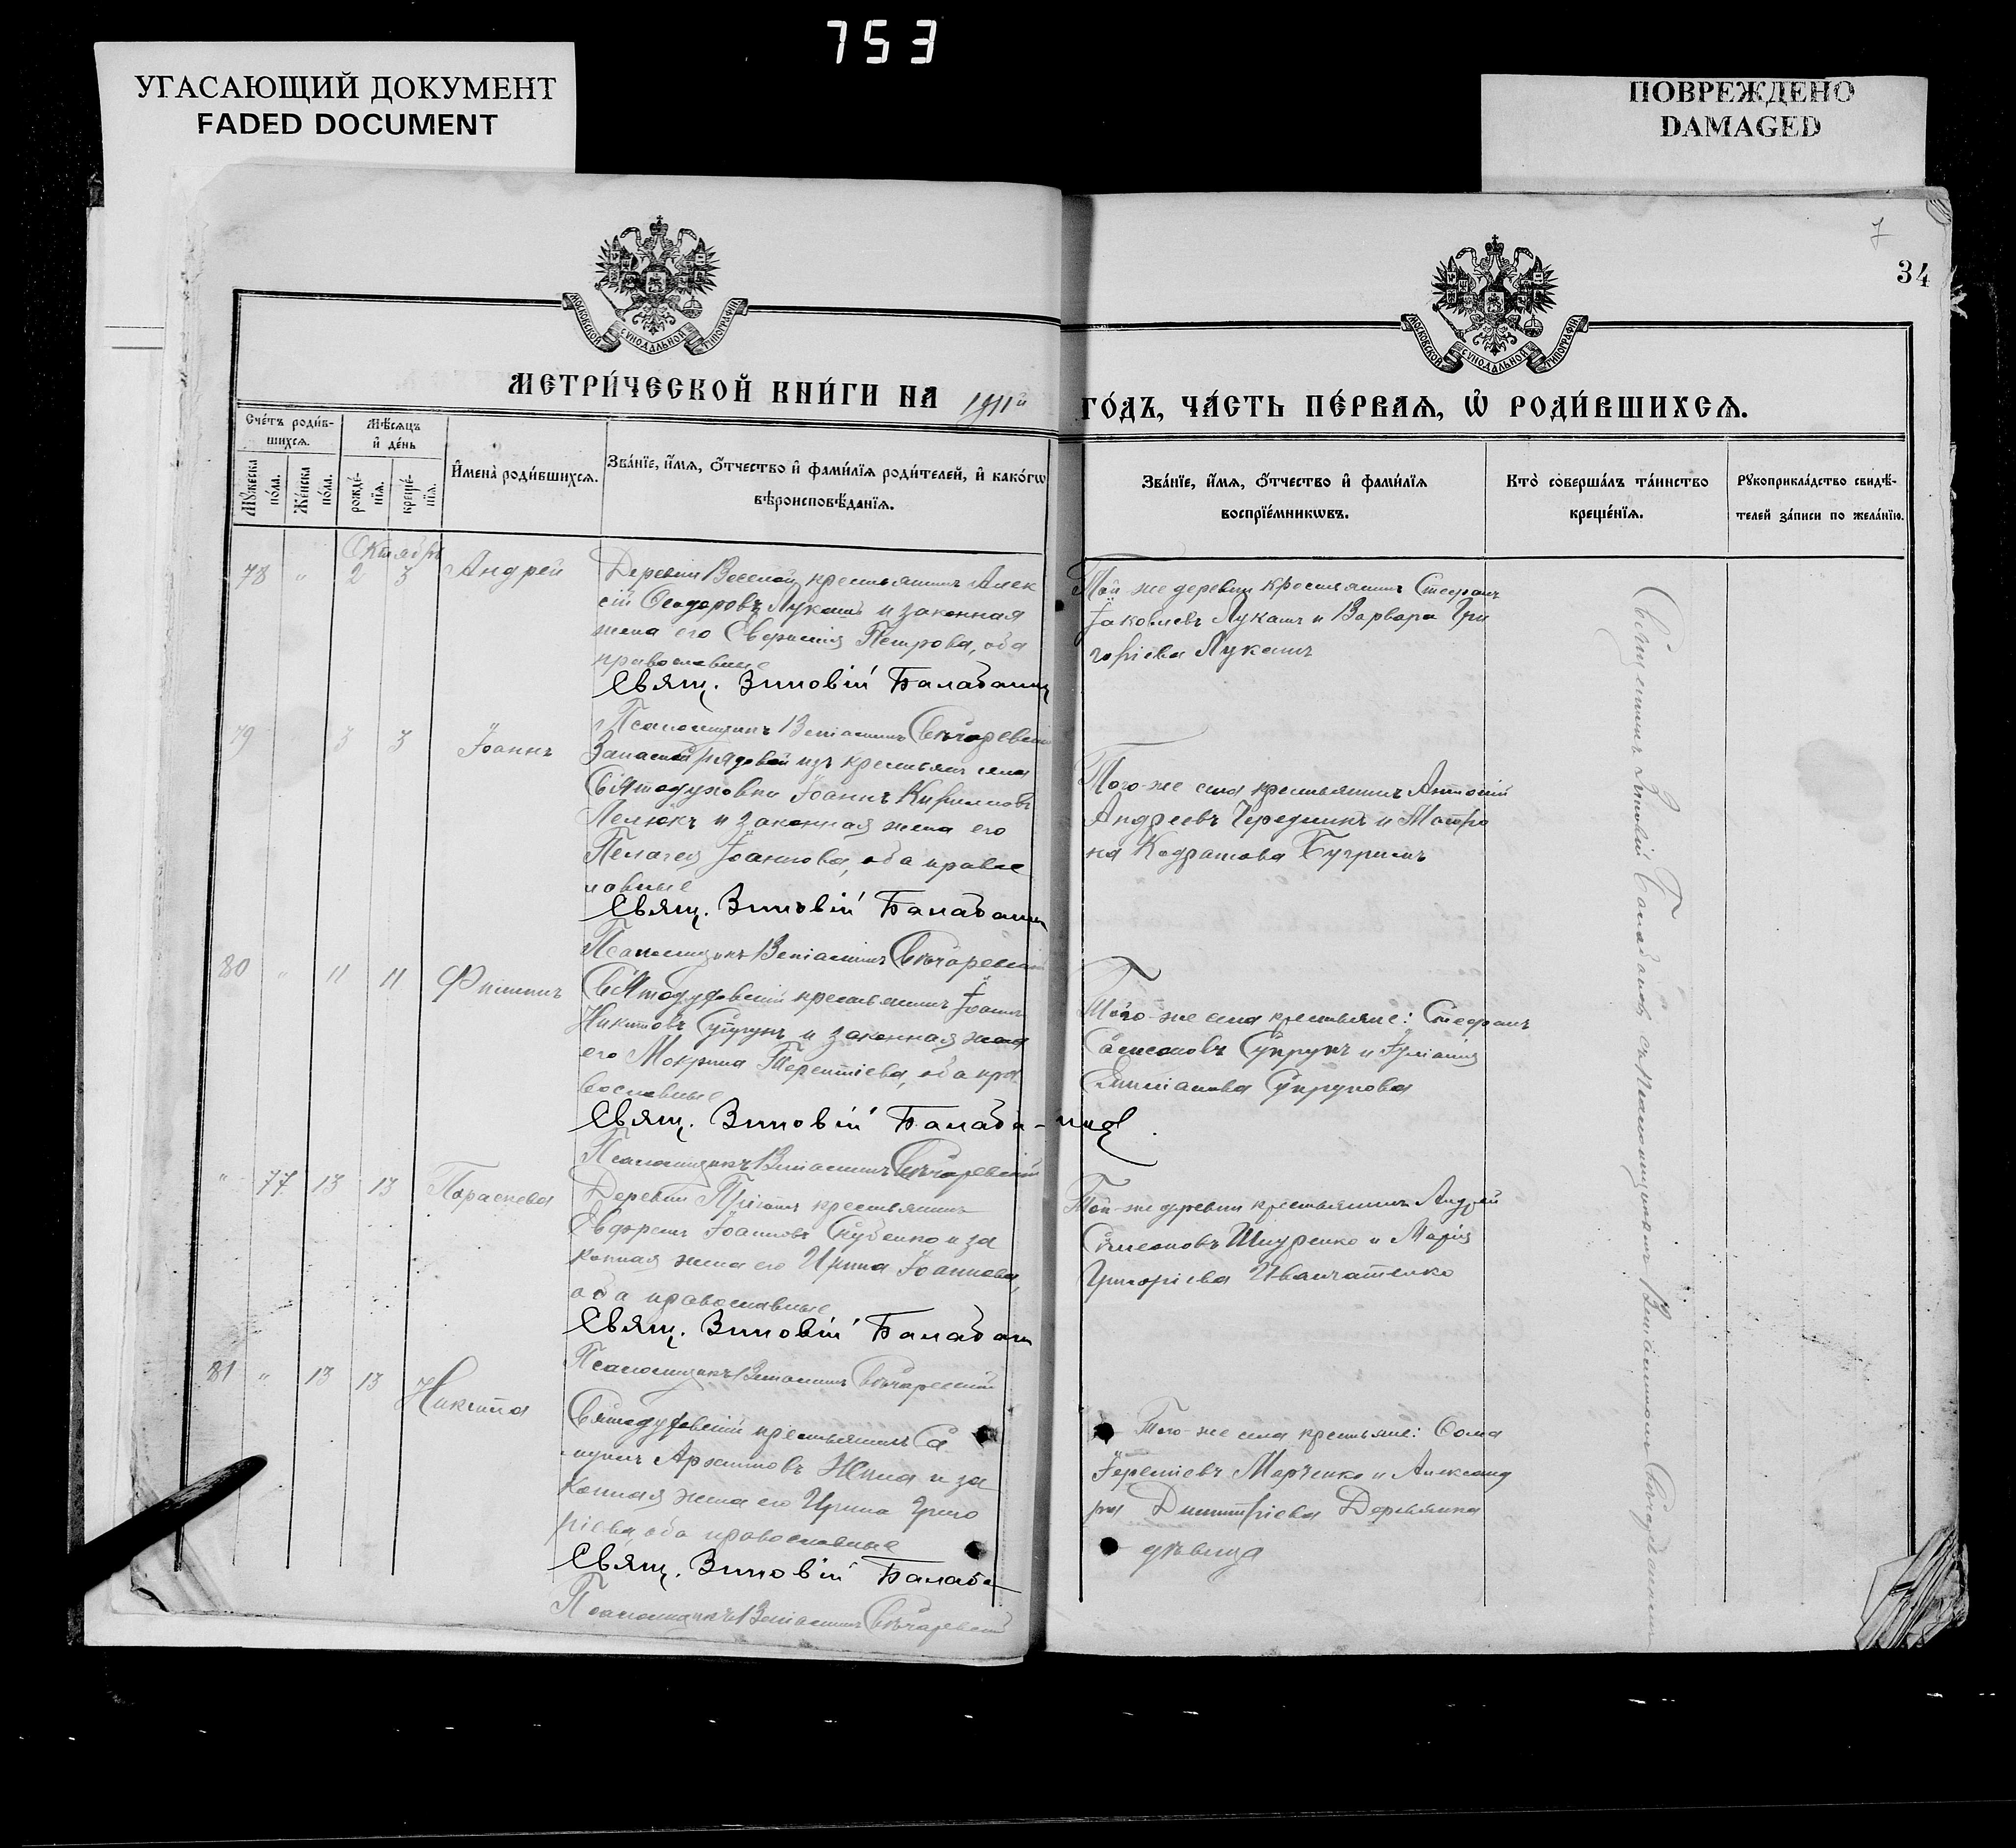 753
УГАСАЮЩИЙ ДОКУМЕНТ
FADED DOCUMENT
ПОВРЕЖДЕНО
DAMAGED
7
34
МОСКОВСКОЙ СѴНОДАЛЬНОЙ ТИПОГРАФІИ
МОСКОВСКОЙ СѴНОДАЛЬНОЙ ТИПОГРАФІИ
МЕТРИ́ЧЕСКОЙ КНИ́ГИ НА 1911й ГО́ДЪ, ЧА́СТЬ ПЕ́РВАѦ, Ѡ҆ РОДИ́ВШИХСѦ.
Сче́тъ роди́в-
шихсѧ.
Мꙋ́жеска по́ла.
Же́нска по́ла.
Мѣ́сѧцъ
и҆ де́нь
рожде́нїѧ.
креще́нїѧ.
И҆мена̀ роди́вшихсѧ.
Зва́нїе, и҆́мѧ, ѻ҆́тчество и҆ фами́лїѧ роди́телей, и҆ како́гѡ
вѣроисповѣ́данїѧ.
Зва́нїе, и҆́мѧ, ѻ҆́тчество и҆ фами́лїѧ
воспрїе́мникѡвъ.
Кто̀ соверша́лъ та́инство
креще́нїѧ.
Рꙋкоприкла́дство свидѣ́-
телей за́писи по жела́нїю.
Октябрь
78 " 2 3 Андрей
Деревни Веселой крестьянинъ Алек
сій Ѳеодоровъ Лукашъ и законная
жена его Евфимія Петрова, оба
православные
Свящ. Зиновій Балабан
Псаломщикъ Веніаминъ Свѣчаревскій
Той-же деревни крестьянинъ Стефанъ
Іаковлевъ Лукашъ и Варвара Гри
горіева Лукашъ
79 3 3 Іоаннъ
Запасной рядовой изъ крестьянъ села
Святодуховки Іоаннъ Кирилловъ
Пелюхъ и законная жена его
Пелагея Іоаннова, оба правос
лавные
Свящ. Зиновій Балабан
Псаломщикъ Веніаминъ Свѣчаревскій
Того-же села крестьянинъ Антоній
Андреевъ Чередникъ и Матро
на Кодратова Бугримъ
80 " 11 11 Филиппъ
Святодуховскій крестьянинъ Іоаннъ
Никитовъ Супрунъ и законная жена
его Мокрина Терентіева, оба пра
вославные
Свящ. Зиновій Балаба-нов
Псаломщикъ Веніаминъ Свѣчаревскій
Того-же села крестьяне: Стефанъ
Самсоновъ Супрунъ и Іуліанія
Супрунова
" 77 13 13 Параскева
Деревни крестьянинъ
Евфремъ Іоанновъ Скубенко и за
конная жена его Ирина Іоаннова,
оба православные
Свящ. Зиновій Балабан
Псаломщикъ Веніаминъ Свѣчаревскій
Той-же деревни крестьянинъ Андрей
Симеоновъ Шкуренко и Марія
Григоріева Иванчатенко
81 " 13 13 Никита
Святодуховскій крестьянинъ Са
муилъ Архиповъ и за
конная жена его Ирина Григо
ріева, оба православные
Свящ. Зиновій Балаба
Псаломщикъ Веніаминъ Свѣчаревскій
Того-же села крестьяне: Ѳома
Іереміевъ Марченко и Александ
ра Димитріева Деревянка
дѣвица
Священникъ Зиновій Балабановъ съ псаломщикомъ Веніаминомъ Свѣчаревскимъ